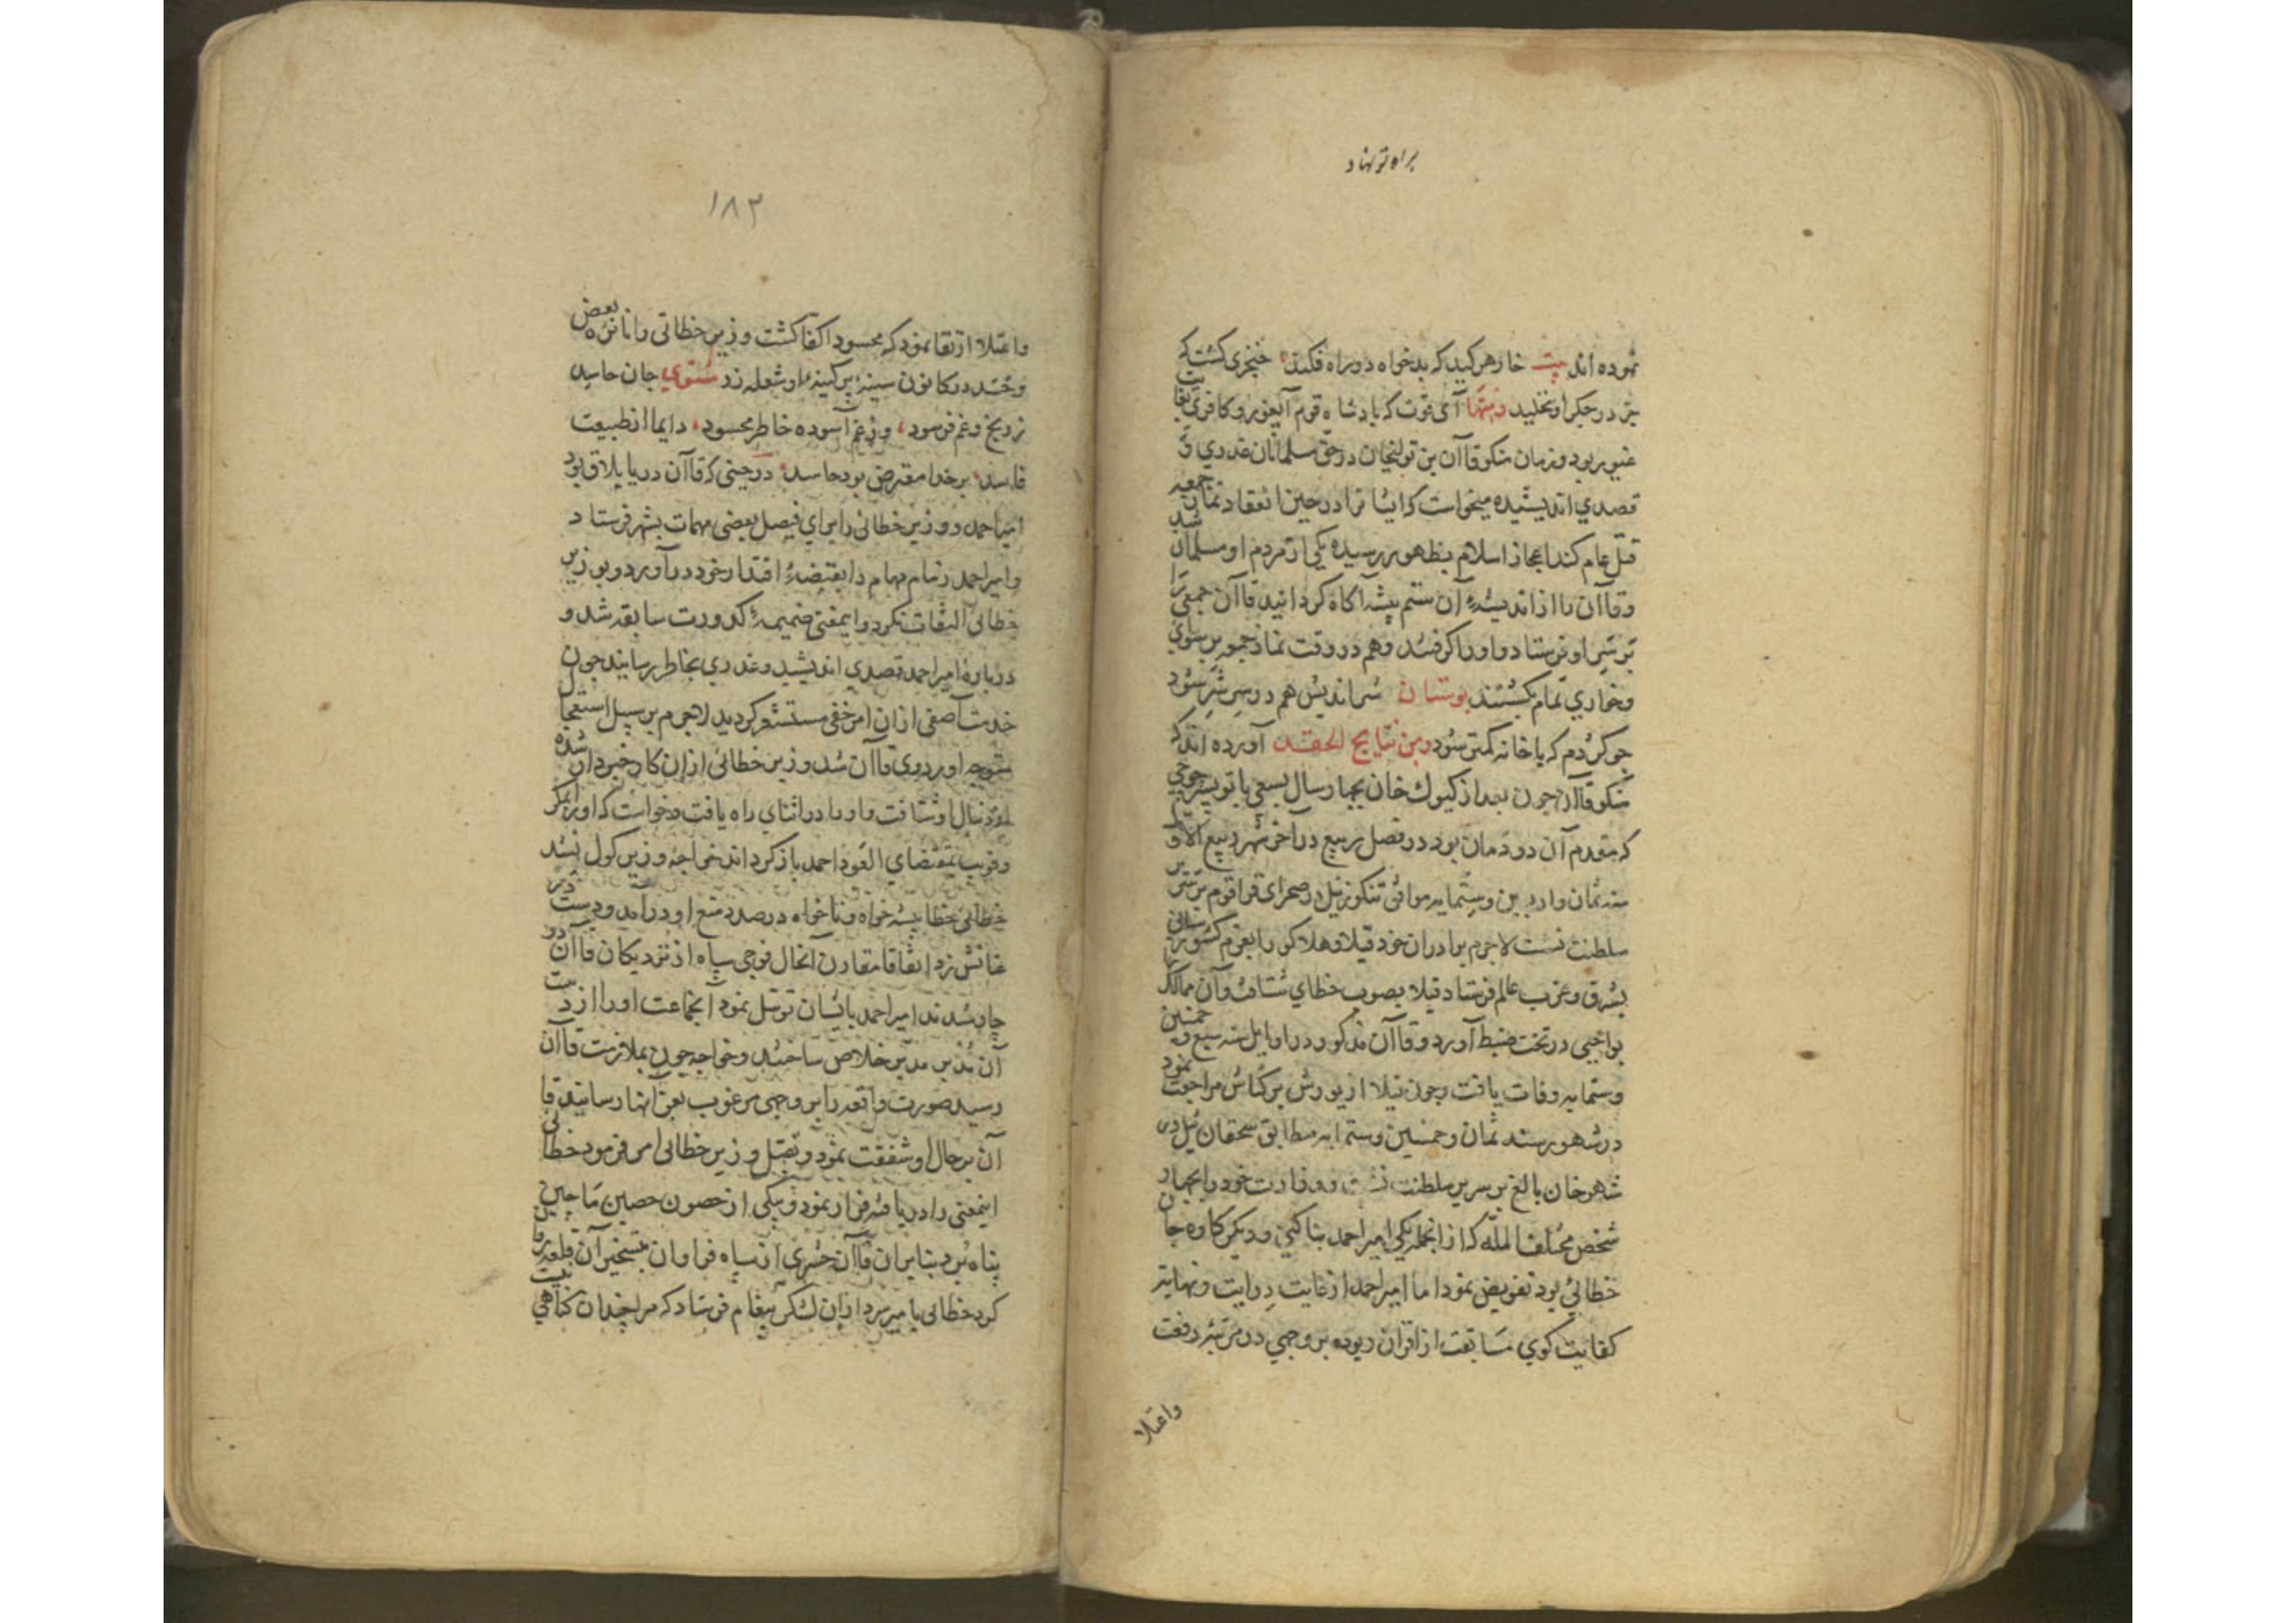 براه تو نهاد
نموده اند بیت خار هر کید که بدخواه در راه فکند خنجری کشت که
جز در جکر او نخلید ومنها آی غوت که بادشاه قوم آیغور و کافری بغایت
غیور بود و زمان منکو قاآن بن تولیخان در حق مسلمانان غدری و
قصدی اندیشیده میخواست که ایشانرا در حین انعقاد نماز جمعه
قتل عام کند اعجاز اسلام بظهور رسیده یکی از مردم او مسلمان شد
وقاآن را از اندیشهٔ آن ستم پیشه آکاه کردانید قاآن جمعی را
بر سر او فرستاد و او را کرفتند و هم در وقت نماز جمعه بر سوای
وخواری تمام بکشتند بوستان شر اندیش هم در سر شر شود
چو کژدم که با خانه کمتر شود ومن نتایج الحقد آورده اند که
منکو قاآن چون بعد از کیوک خان بچهار سال بسعی باتو پسر جوجی
که مقدم آن دودمان بود در فصل ربیع در آخر شهر ربیع الاول
سنه ثمان واربعین وستمایه موافق تنکوز ئیل در صحرای قراقوم بر سریر
سلطنت نشست لاجرم برادران خود قیلا و هلاکو را بعزم کشورستانی
بشرق وغرب عالم فرستاد قیلا بصوب خطای شتافت و آن ممالک را
بواجبی در تحت ضبط آورد و قاآن مذکور در اوایل سنه سبع و خمسین
وستمایه وفات یافت و چون قیلا از یورش برکشاس مراجعت نمود
در شهور سنه ثمان وخمسین وستمایه مطابق سحقان ئیل در
شهر خان بالغ بر سریر سلطنت نشست و وزارت خود را بچهار
شخص مختلف المله که از انجمله یکی امیر احمد بناکتی و دیکر کاوه جان
خطائی بود تفویض نمود اما امیر احمد از غایت درایت ونهایت
کفایت کوی مسابقت از اقران ربوده بر وجهی در مرتبهٔ رفعت
واعتلا
۱۸۳
واعتلا ارتقا نمود که محسود اکفا کشت و وزیر خطائی را نائره بغض
وحسد در کانون سینهٔ پر کینهٔ او شعله زد مثنوی جان حاسد
ز رنج و غم فرسود وز غم آسوده خاطر محسود دایما از طبیعت
فاسد بر خدا معترض بود حاسد در حینی که قاآن در یایلاق بود
امیر احمد و وزیر خطائی را برای فیصل بعضی مهمات بشهر فرستاد
و امیر احمد زمام مهام را بقبضهٔ اقتدار خود در آورد و بوزیر
خطائی التفات نکرد و اینمعنی ضمیمهٔ کدورت سابقه شد و
دربارهٔ امیر احمد قصدی اندیشید و غدری بخاطر رسانید چون
خدمت آصفی از ان امر خفی مستشعر کردید لاجرم بر سبیل استعجال
متوجه اوردوی قاآن شد و وزیر خطائی از ان کار خبردار شده
از دنبال او شتافت و او را در اثنای راه یافت و خواست که او را بمکر
وفریب بمقتضای العود احمد باز کرداند خواجه وزیر کول نشد
خطائی خطا پیشه خواه و ناخواه در صدد منع او در آمد و دست در
عنانش زد اتفاقا مقارن آنحال فوجی سپاه از نزدیکان قاآن دو
چار شدند امیر احمد بایشان توسل نمود آنجماعت او را از دست
آن مدبر خلاص ساختند و خواجه چون بملازمت قاآن
رسید صورت واقعه را بر وجهی مرغوب بعز انها رسانید قا
آن بر حال او شفقت نمود و بقتل وزیر خطائی امر فرمود خطائی
اینمعنی را دریافته فرار نمود و بیکی از حصون حصین ماچین
پناه برد بنا بران قاآن حشری از سپاه فراوان بتسخیر آن قلعه
کرد خطائی بامیر سردار ان لشکر پیغام فرستاد که مرا چندان کناهی نیست